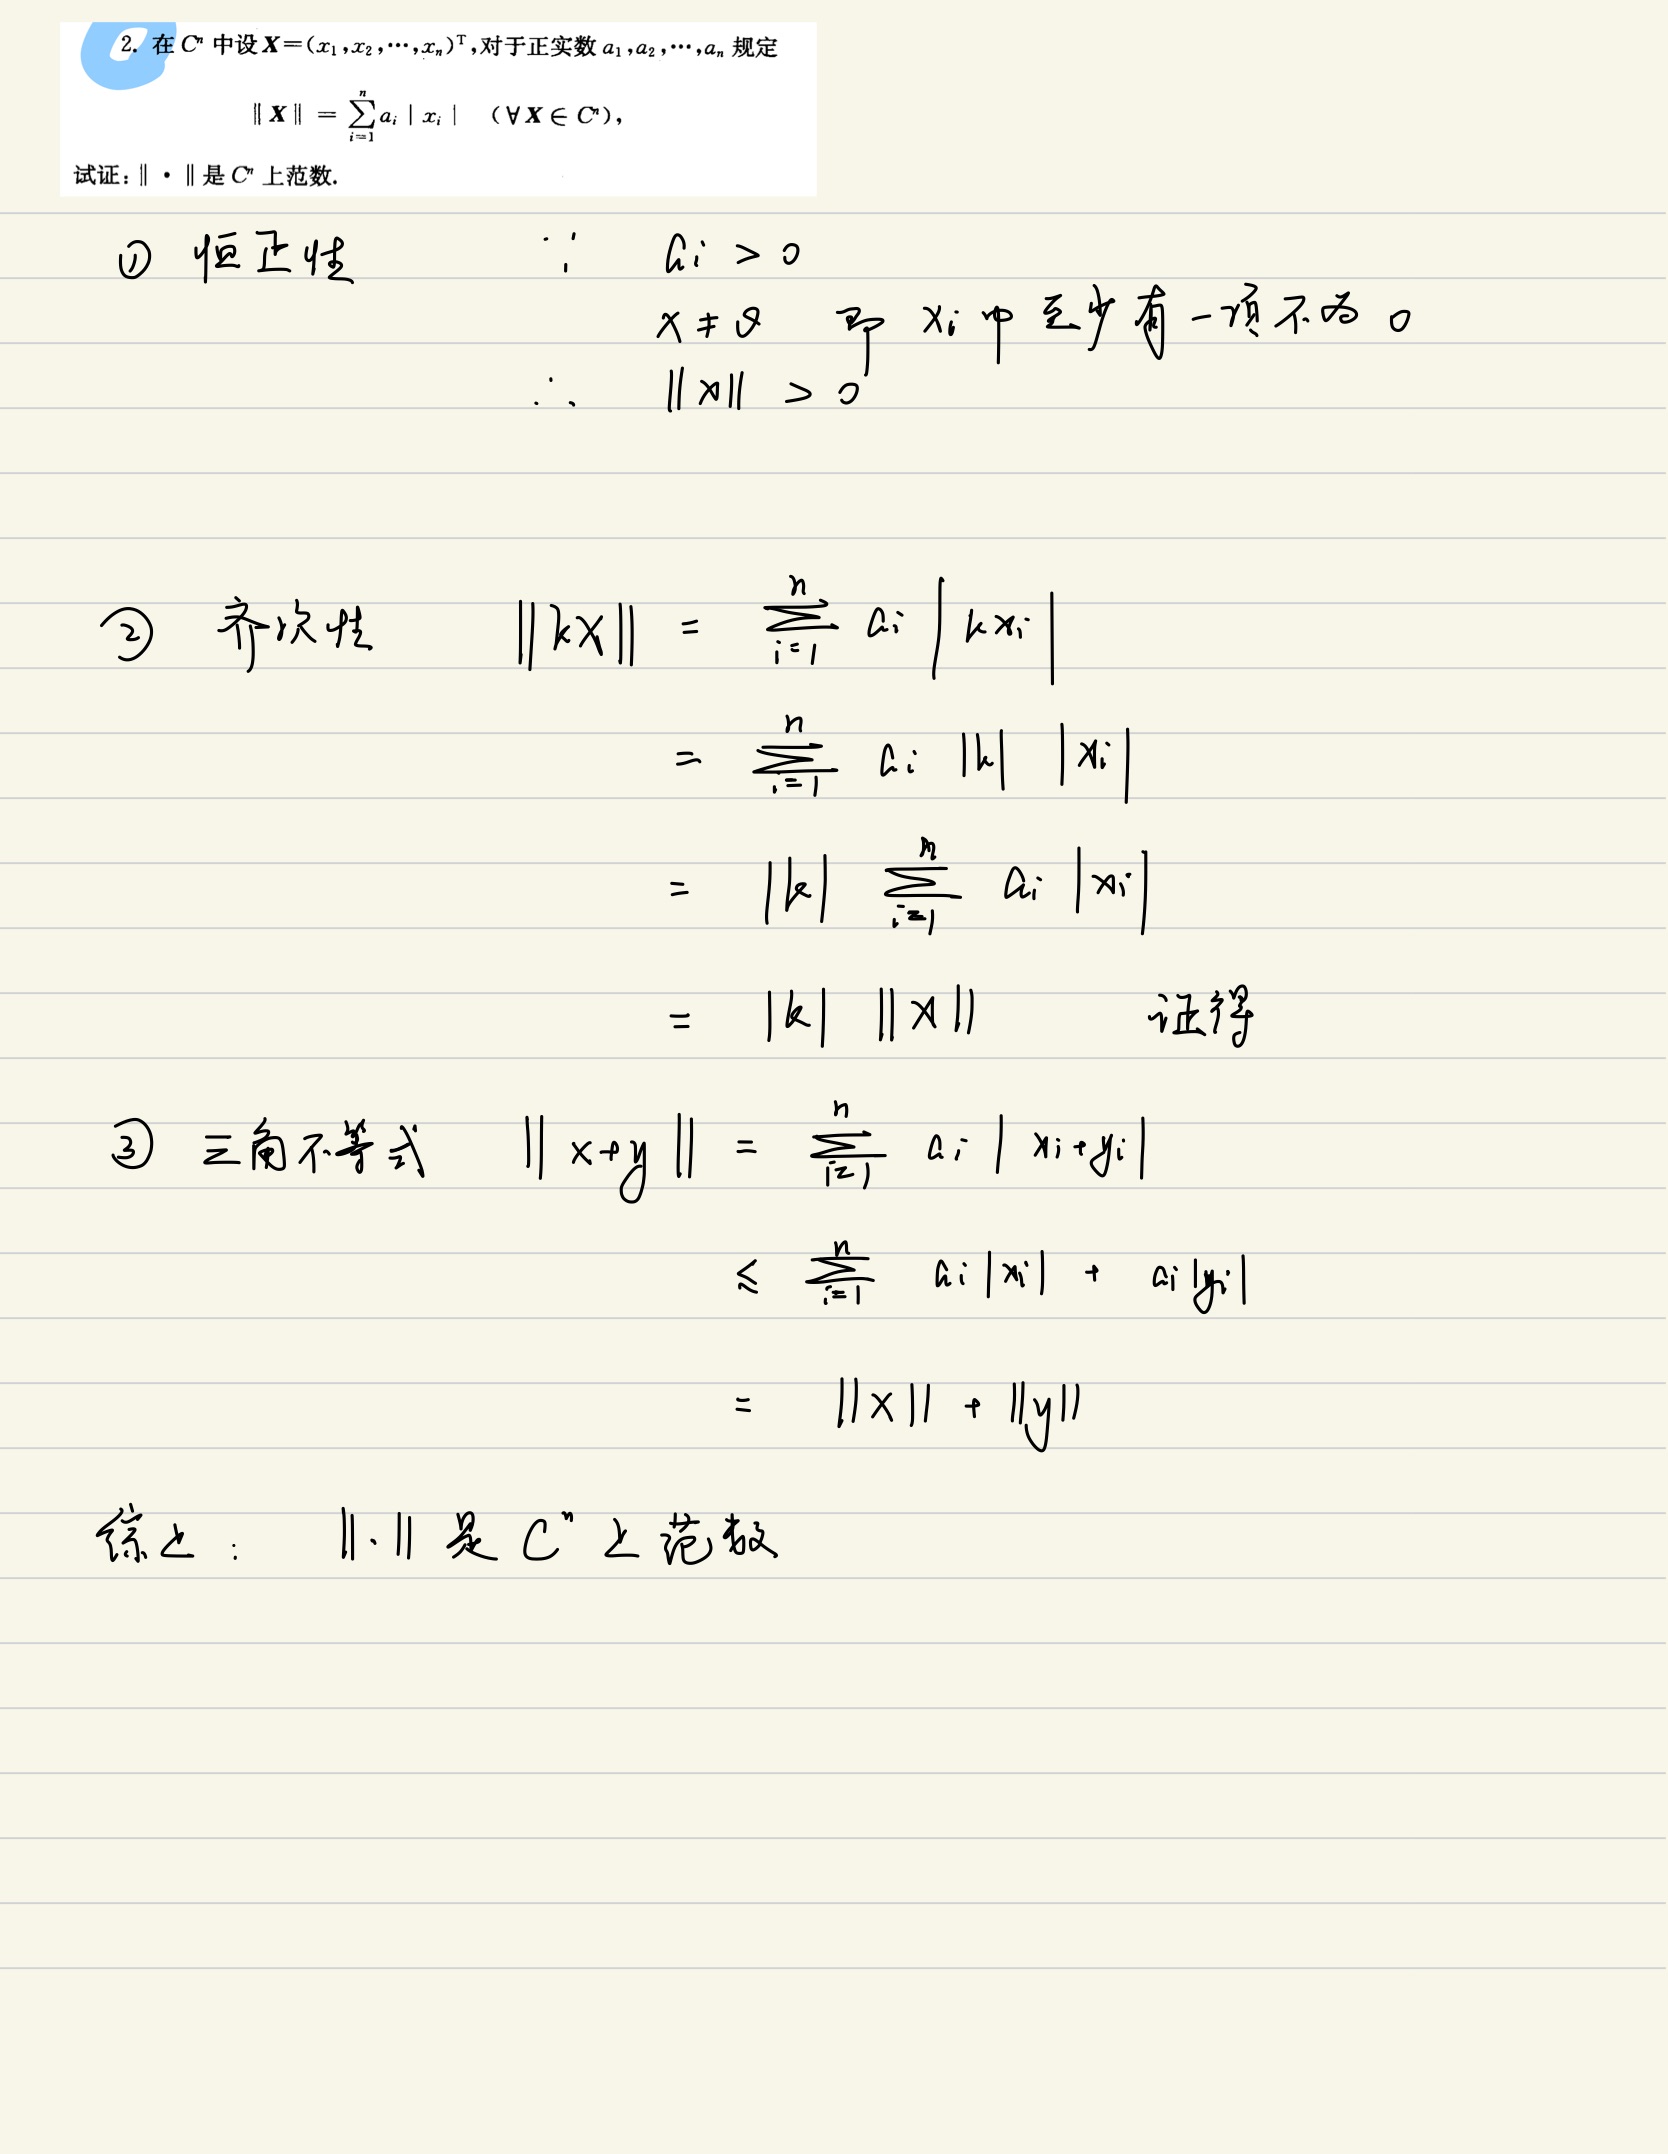 2. 在 Cⁿ 中设 X=(x₁,x₂,⋯,xₙ)ᵀ,对于正实数 a₁,a₂,⋯,aₙ 规定
‖X‖ = ∑ᵢ₌₁ⁿ aᵢ|xᵢ| (∀X∈Cⁿ),
试证:‖·‖是 Cⁿ 上范数.
① 恒正性 ∵ aᵢ > 0
x ≠ θ 即 xᵢ 中至少有一项不为 0
∴ ‖x‖ > 0
② 齐次性 ‖kX‖ = ∑ᵢ₌₁ⁿ aᵢ |kxᵢ|
= ∑ᵢ₌₁ⁿ aᵢ |k| |xᵢ|
= |k| ∑ᵢ₌₁ⁿ aᵢ |xᵢ|
= |k| ‖x‖ 证得
③ 三角不等式 ‖x+y‖ = ∑ᵢ₌₁ⁿ aᵢ |xᵢ+yᵢ|
≤ ∑ᵢ₌₁ⁿ aᵢ|xᵢ| + aᵢ|yᵢ|
= ‖x‖ + ‖y‖
综上: ‖·‖ 是 Cⁿ 上范数